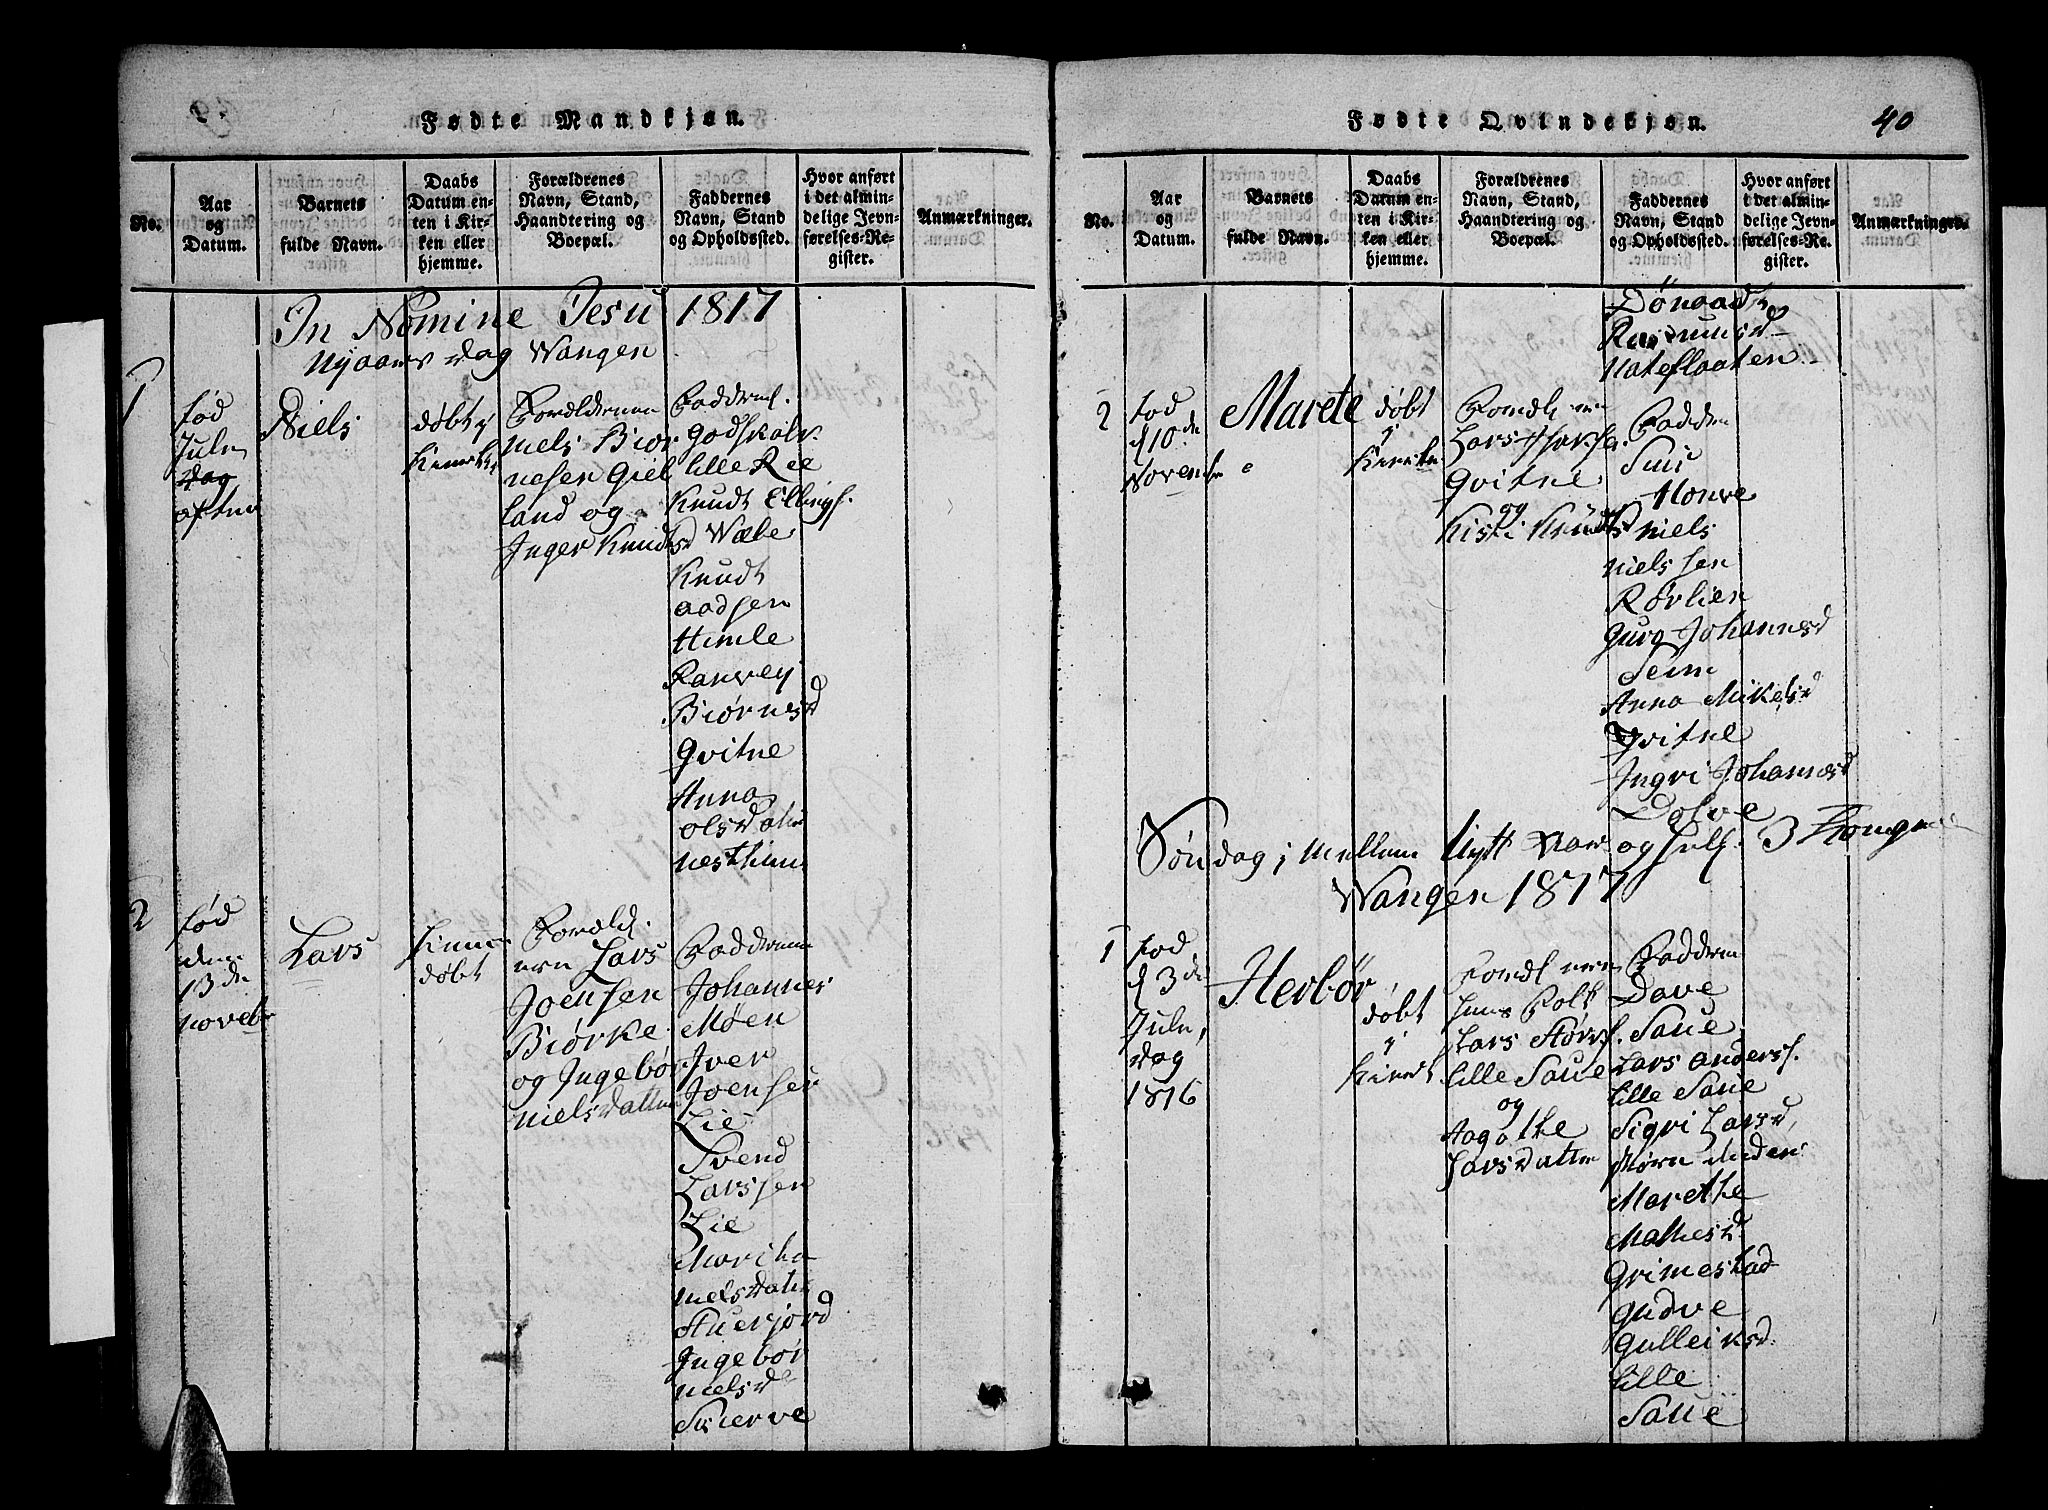 Fødte Mandkjøn.
No.
Aar
og
Datum.
Barnets
fulde Navn.
Daabs
Datum en-
ten i Kir-
ken eller
hjemme.
Forældrenes
Navn, Stand,
Haandtering og
Boepæl.
Faddernes
Navn, Stand
og Opholdssted.
Hvor anført
i det almin-
delige Jevn-
førelses-Re-
gister.
Anmærkninger.
In Nomine Jesu 1817
Nyaars dag Wangen
1
fød
Jule
dag
aften
Niels
døbt i
Forældrenne
Niels Biør
nesen Giel
land og
Inger Knudsd
Fadderne
Godskalk
lille Ree
Knudt Ellings.
Wæle
Knudt
Aadsen
Himle
Ranvey
Biørnesd
Gvitne
Anna
olsdatter
Nesthun
2
fød
den
13 de
Noveb
Lars
døbt
Foreld
ren Lars
Joensen
Biørke
og Ingebør
Nielsdatter
Fadderenne
Johannes
Møen
Iver
Joensen
Lie
Svend
Larssen
Lie
Maritha
Nielsdatter
Ingebør
Nielsd
Skierve
Fødte Qvindekjøn.
40
No.
Aar
og
Datum.
Barnets
fulde Navn.
Daabs
Datum en-
ten i Kir-
ken eller
hjemme.
Forældrenes
Navn, Stand,
Haandtering og
Boepæl.
Faddernes
Navn, Stand
og Opholdssted.
Hvor anført
i det almin-
delige Jevn-
førelses-Re-
gister.
Anmærkninger.
Rasmusd
2
fød
d 10 de
Novembr
Marete
døbt
i
Kirken
Lars
Gvitne
og
Kisti Knudsd
Fadderne
Honve
Niels
Nielssen
Rørlien
Guro Johannesd
Seim
Anna Mikelsd
Gvitne
Ingri Johannesd
Dolve
Søndag i Mellem Nytt Aar og 3 Konger
Wangen 1817
1
fød
d 3 de
Jule
dag
1816
Herbør
døbt
i
Folk
Lars Størs.
lille Saue
og
Aagothe
Larsdatter
Fadderne
Dave
Saue
Lars Anders.
lille Saue
Sigvi Larsd
Marethe
Mathesd
Grimestad
Gudve
Gulleiksd.
lille
Saue